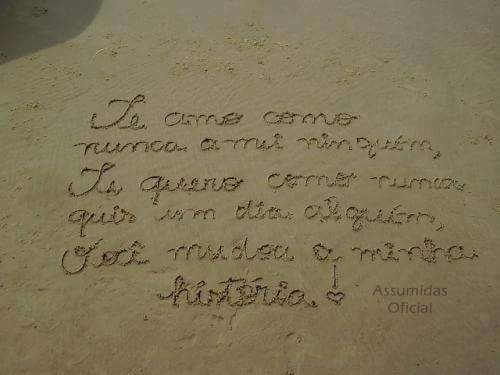 Te amo como
nunca amei ninguém,
Te quero como nunca
quis um dia alguém,
Você mudou a minha
história!
Assumidas
Oficial